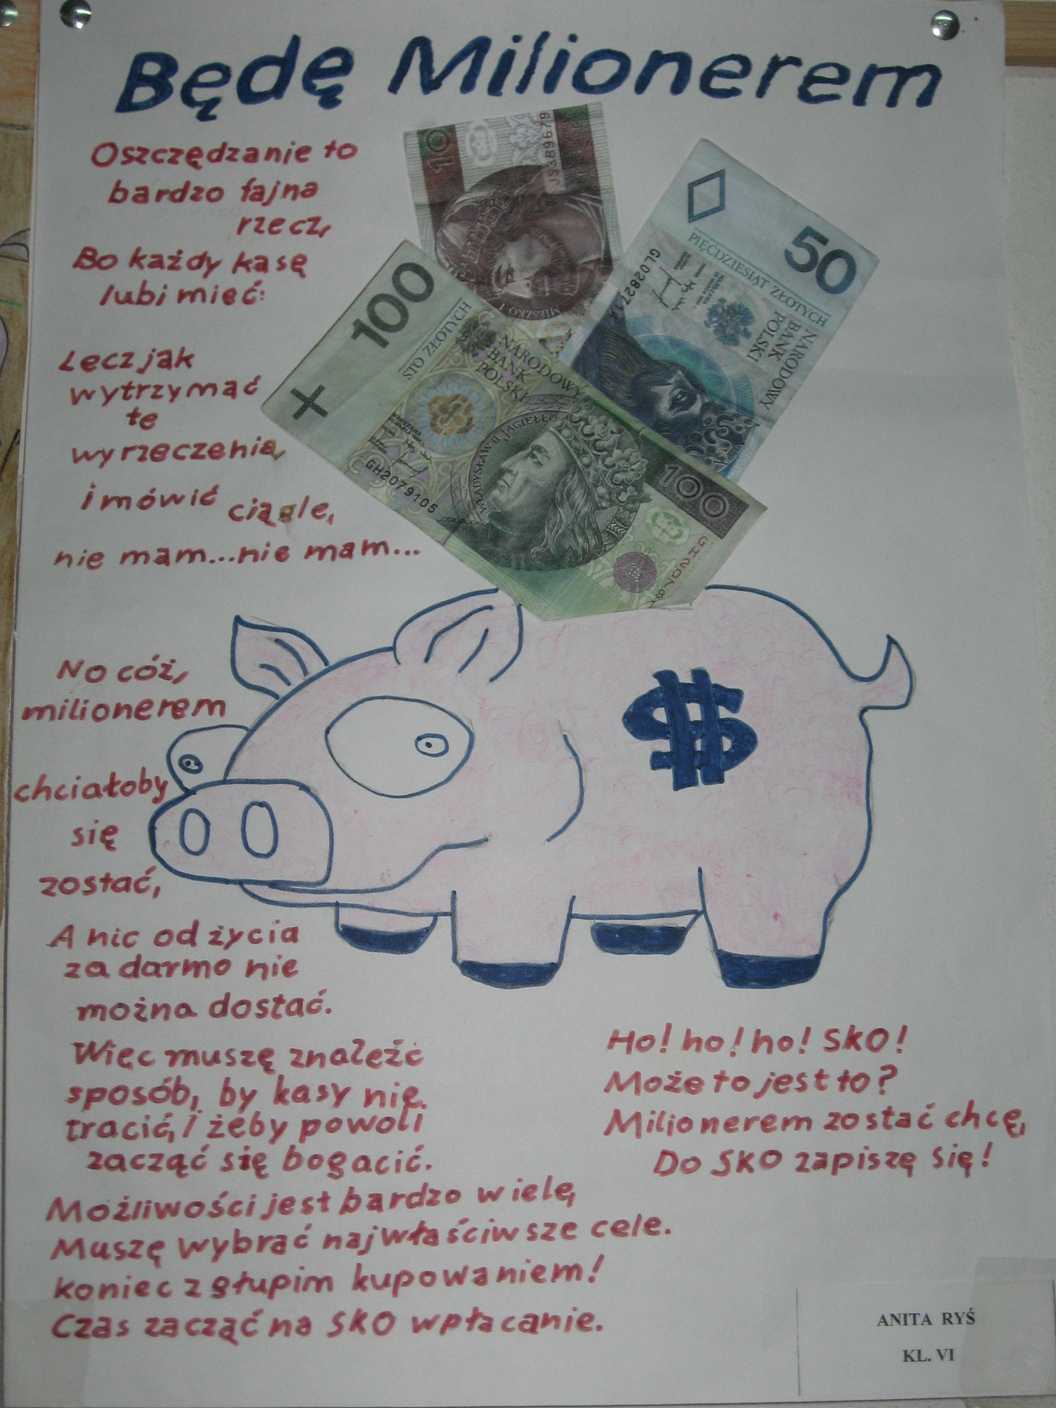 Będę Milionerem
Oszczędzanie to
bardzo fajna
rzecz,
Bo każdy kasę
lubi mieć:
Lecz jak
wytrzymać
te
wyrzeczenia,
i mówić ciągle,
nie mam...nie mam...
No cóż,
milionerem
chciałoby
się
zostać,
A nic od życia
za darmo nie
można dostać.
Więc muszę znaleźć
sposób, by kasy nie
tracić, i żeby powoli
zacząć się bogacić.
Możliwości jest bardzo wiele,
Muszę wybrać najwłaściwsze cele.
koniec z głupim kupowaniem!
Czas zacząć na SKO wpłacanie.
Ho! ho! ho! SKO!
Może to jest to?
Milionerem zostać chcę,
Do SKO zapiszę się!
10
JS389679
MIESZKO I
50
PIĘĆDZIESIĄT ZŁOTYCH
NARODOWY
BANK
POLSKI
100
STO ZŁOTYCH
NARODOWY
BANK
POLSKI
WŁADYSŁAW II JAGIEŁŁO
GH2079105
100
$
ANITA RYŚ
KL. VI